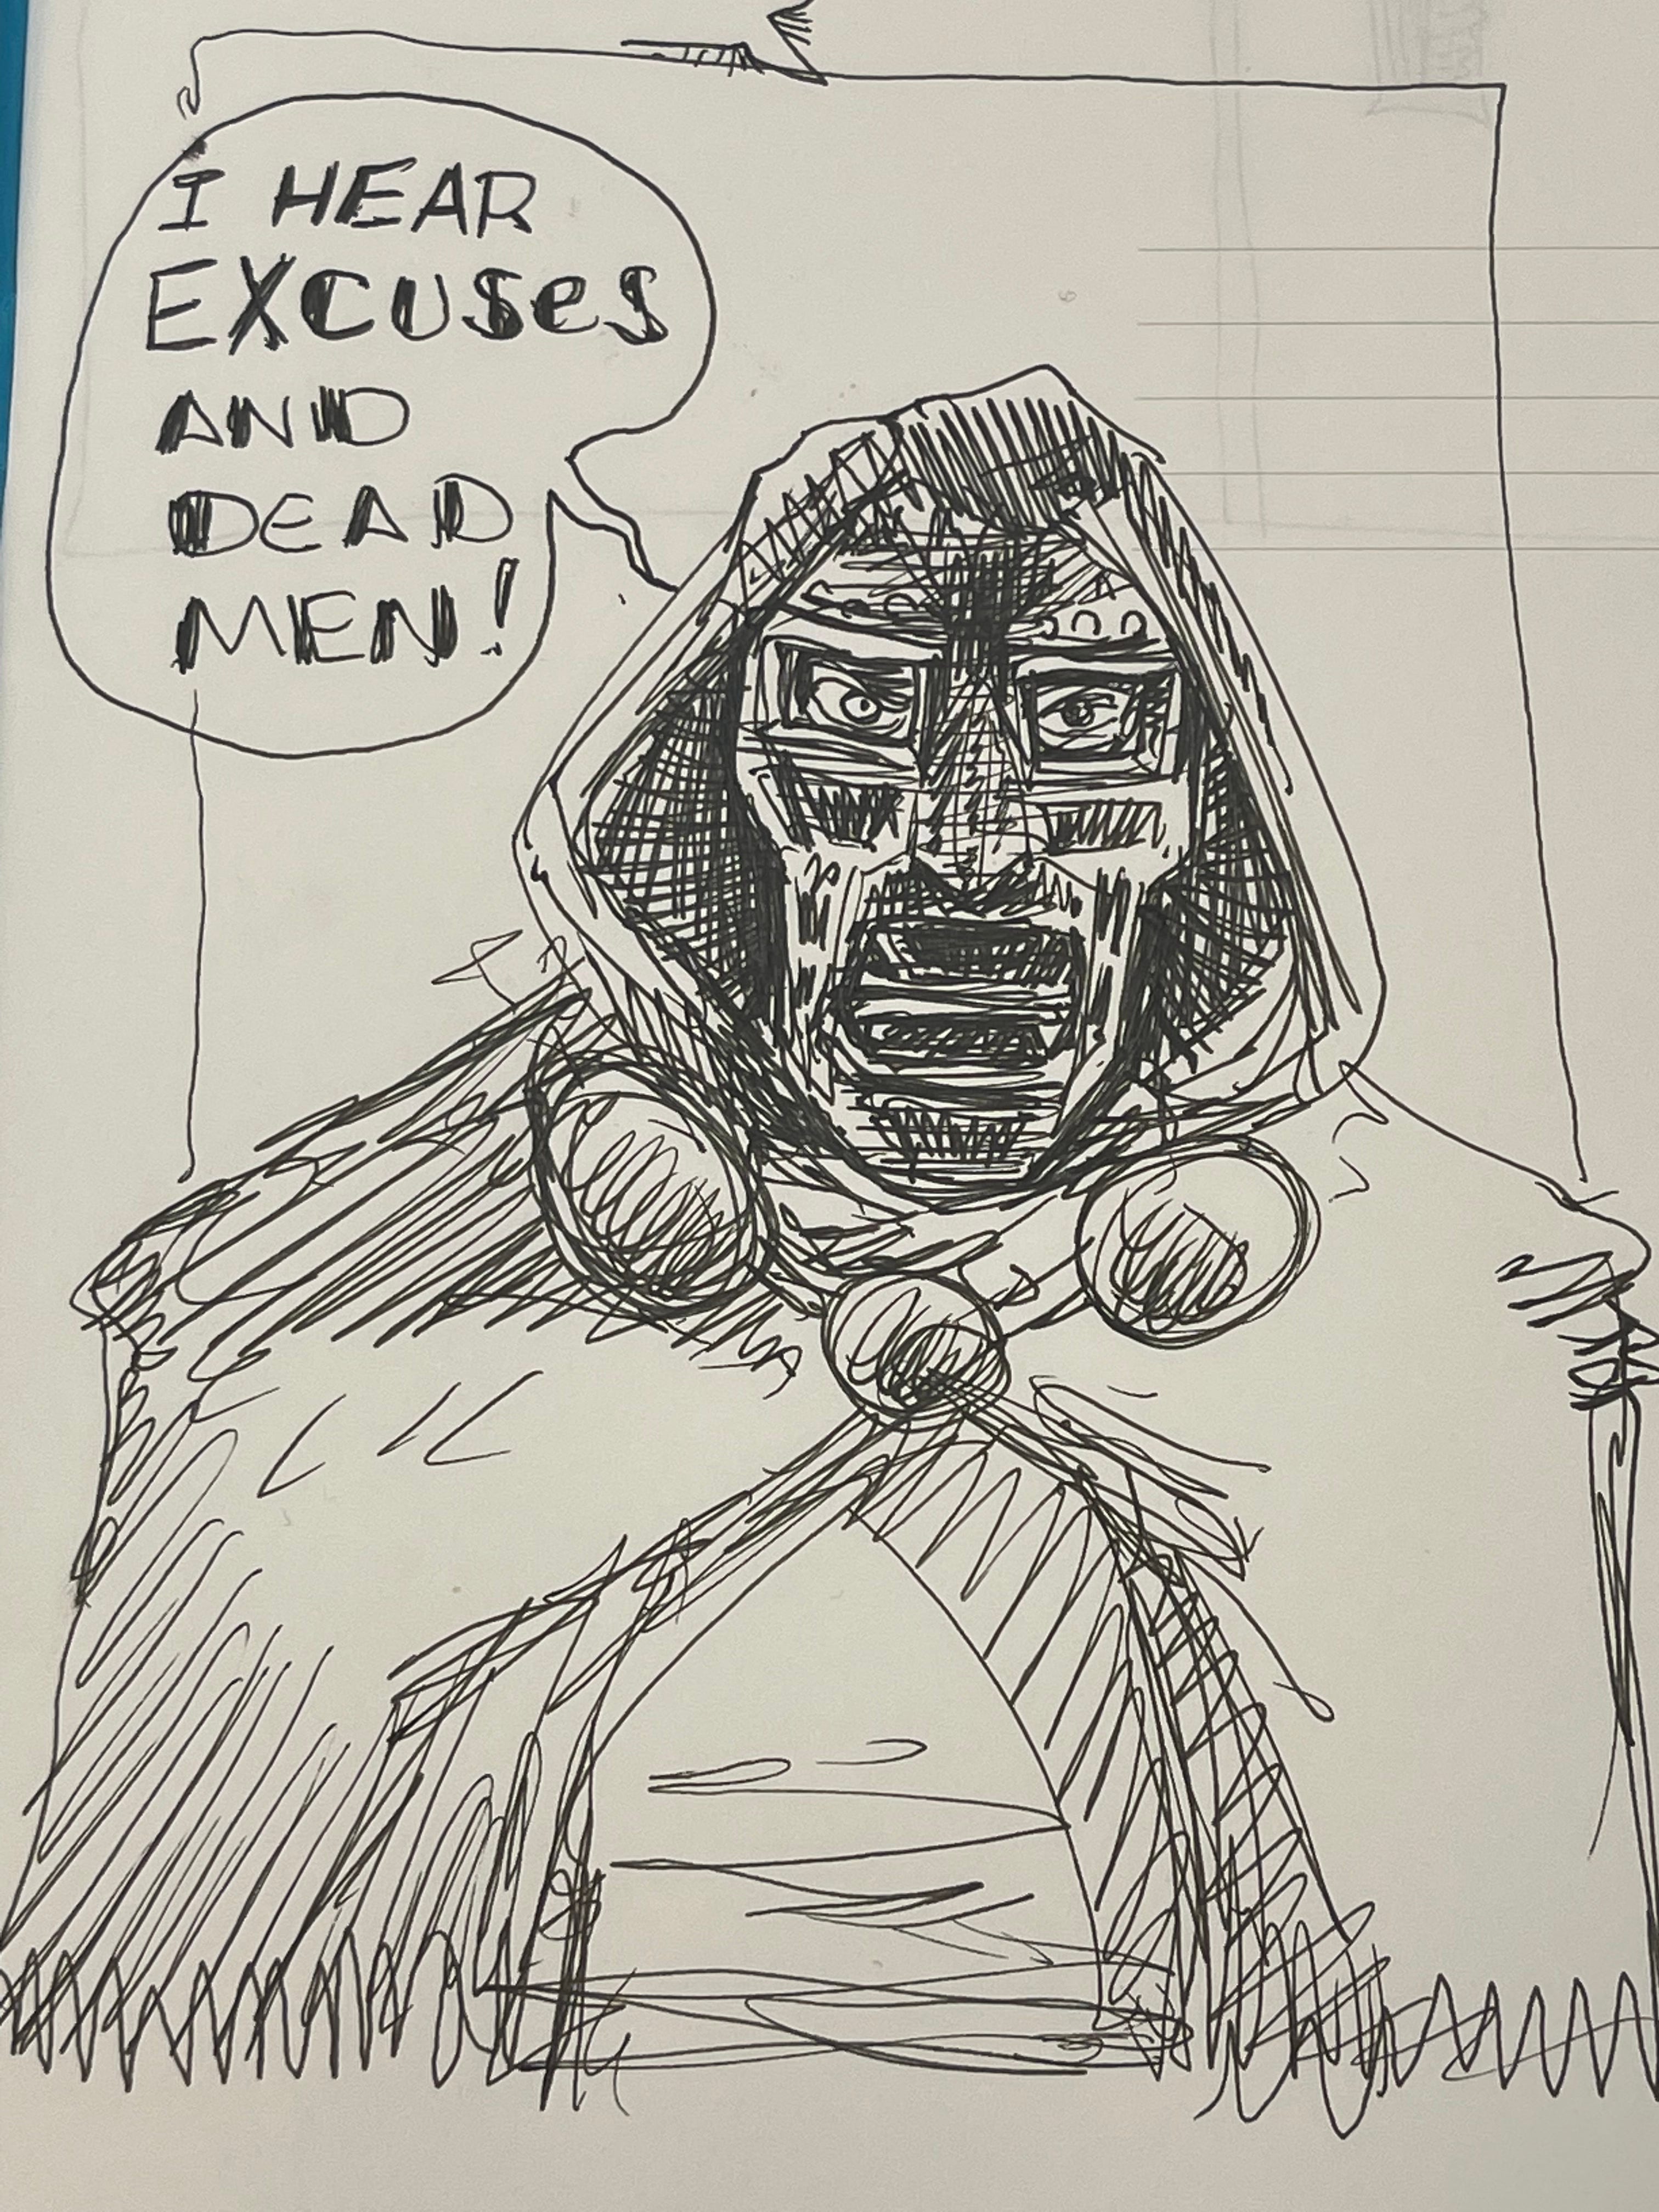 I HEAR
EXCUSeS
AND
DEAD
MEN!